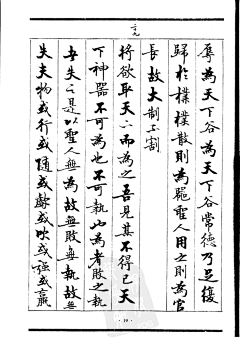 辱為天下谷為天下谷常德乃足復
歸於樸樸散則為器聖人用之則為官
長故大制不割
將欲取天下而為之吾見其不得已天
下神器不可為也不可執也為者敗之執
者失之是以聖人無為故無敗無執故無
失夫物或行或隨或歔或吹或強或羸
· 19 ·